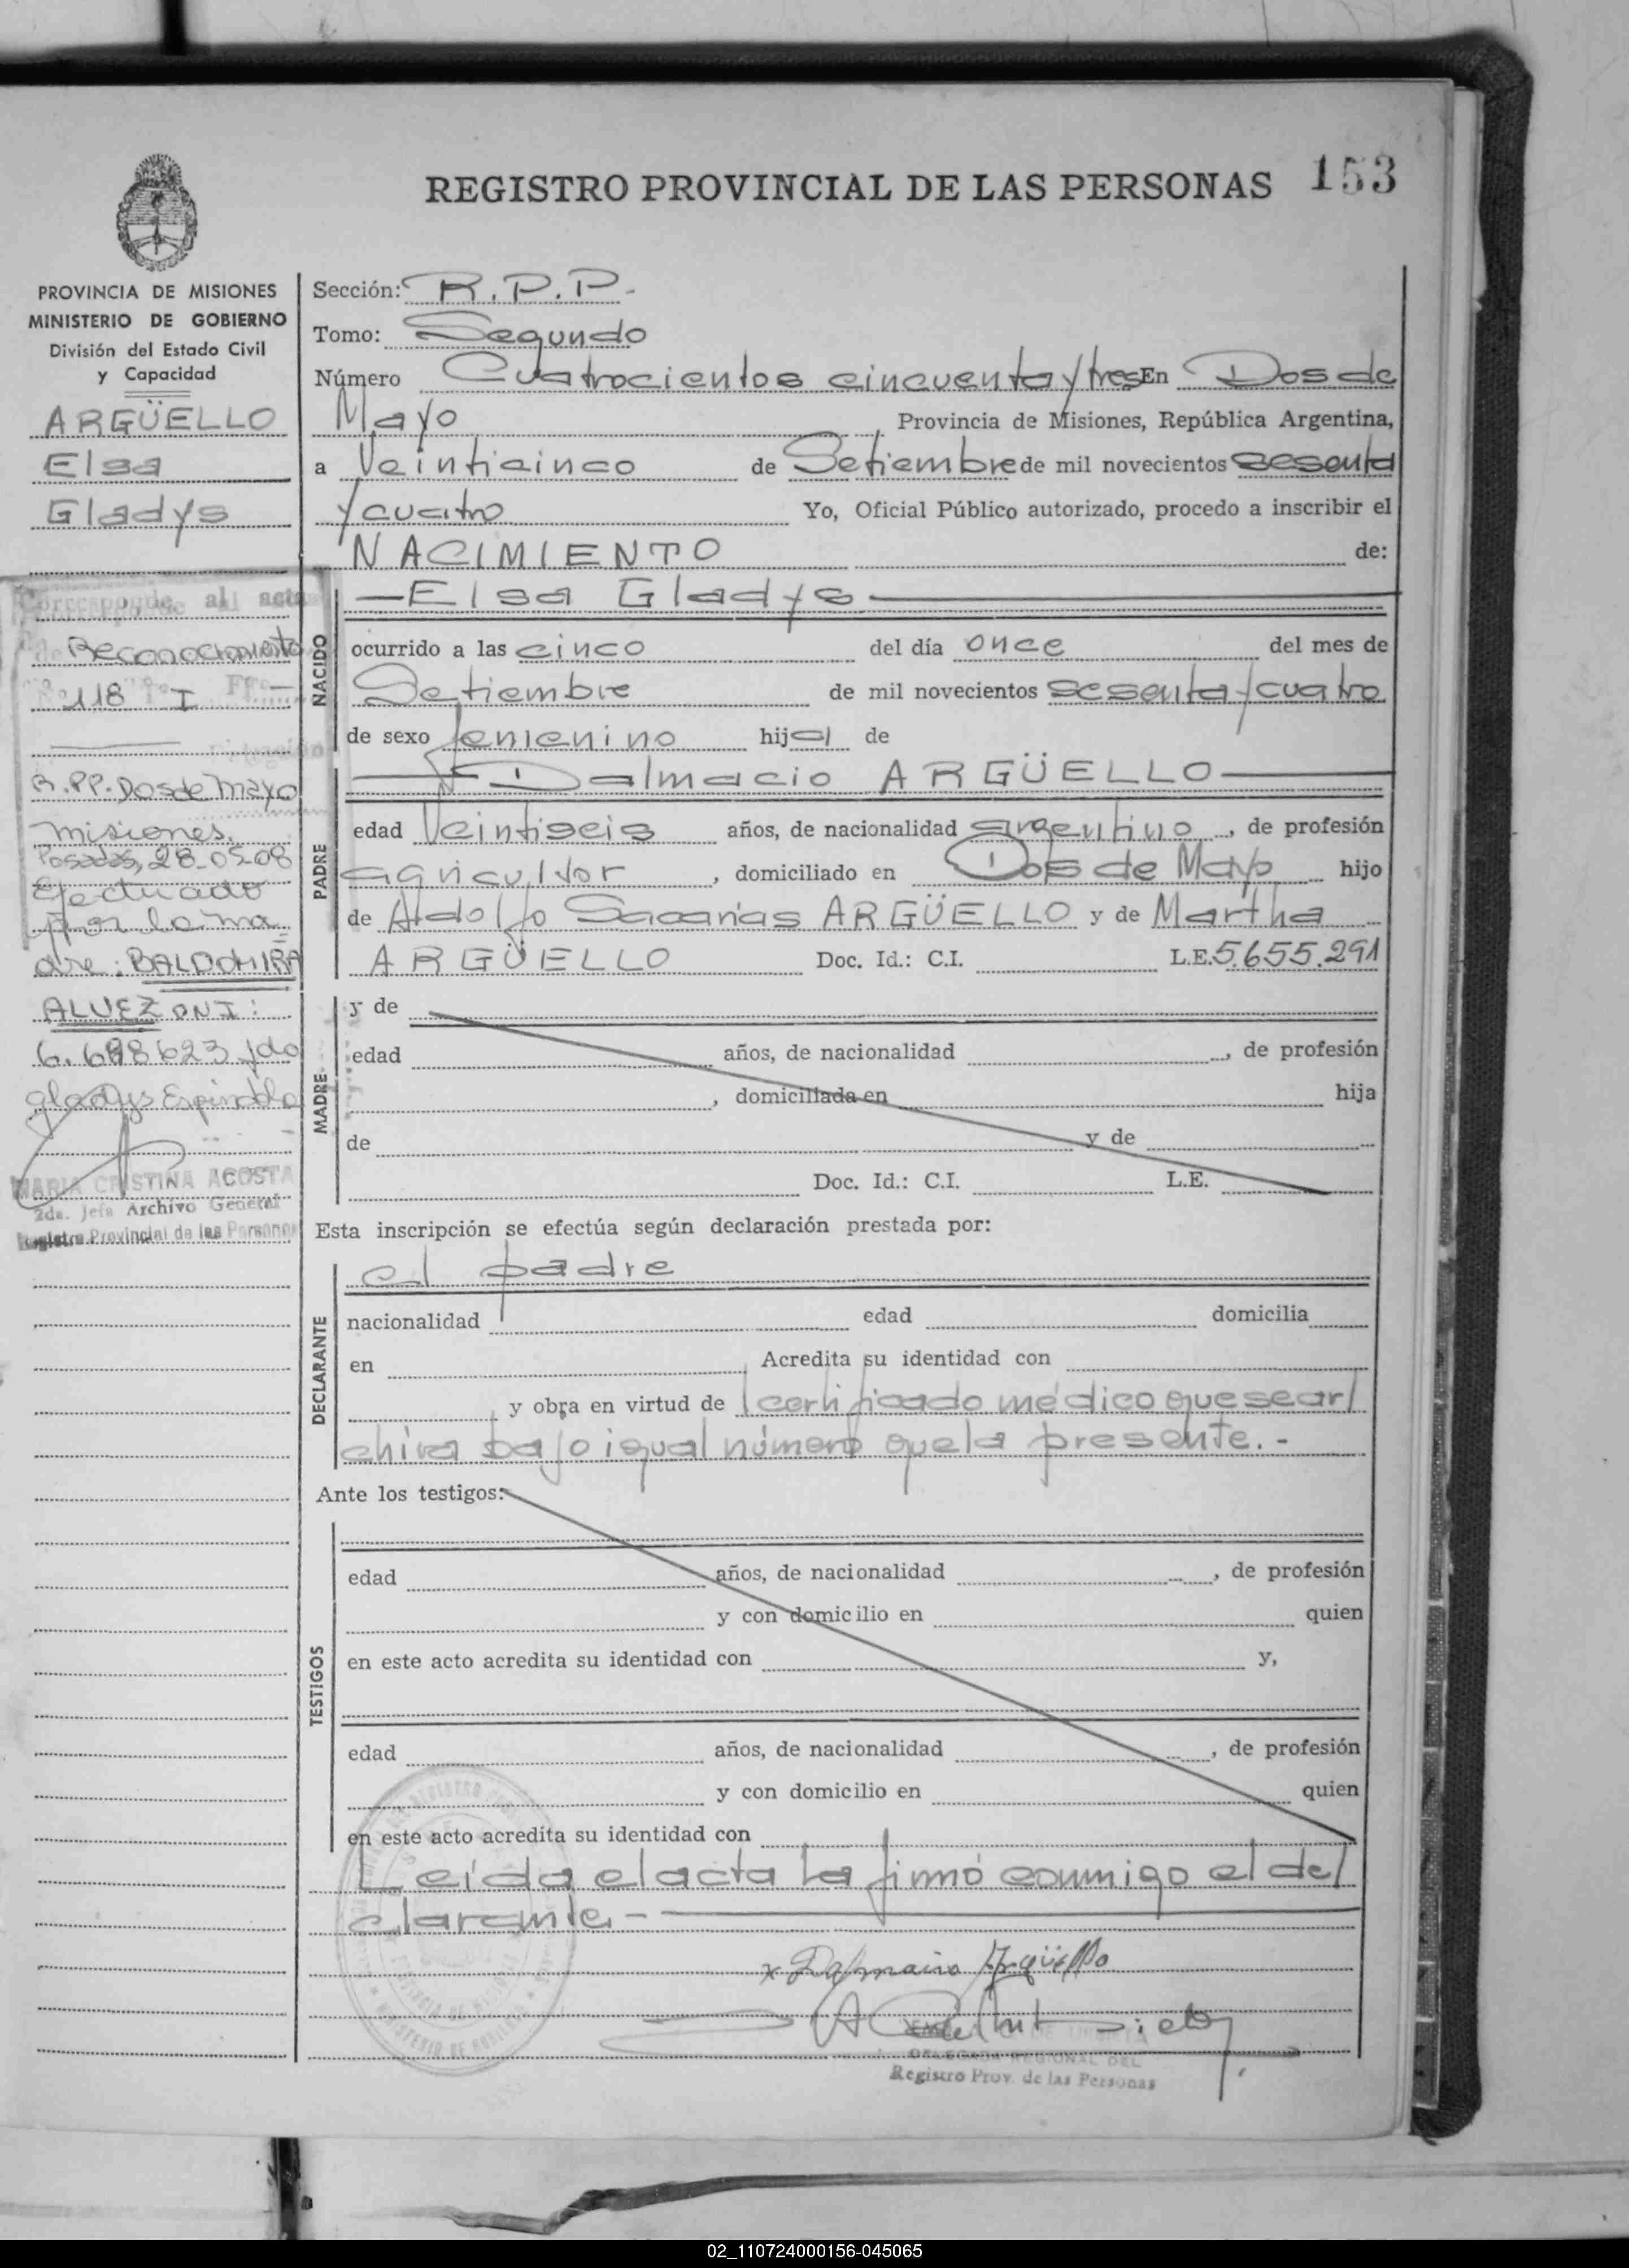 REGISTRO PROVINCIAL DE LAS PERSONAS 153
PROVINCIA DE MISIONES
MINISTERIO DE GOBIERNO
División del Estado Civil
y Capacidad
ARGÜELLO
Elsa
Gladys
Corresponde al acta
de Reconocimiento
Nº 118 Tº I Fº —
R.PP. Dos de Mayo
Misiones.
Posadas, 28-05-08
Efectuado
por la ma
dre: BALDOMIRA
ALVEZ DNI:
6.698623 fdo
Gladys Espindola
MARIA CRISTINA ACOSTA
2da. Jefa Archivo General
Registro Provincial de las Personas
Sección: R.P.P.-
Tomo: Segundo
Número Cuatrocientos cincuenta y tres En Dos de
Mayo , Provincia de Misiones, República Argentina,
a Veinticinco de Setiembre de mil novecientos sesenta
y cuatro Yo, Oficial Público autorizado, procedo a inscribir el
NACIMIENTO de:
NACIDO
—Elsa Gladys—
ocurrido a las cinco del día once del mes de
Setiembre de mil novecientos sesenta y cuatro
de sexo femenino hija de
PADRE
—Dalmacio ARGÜELLO—
edad Veintiseis años, de nacionalidad argentino, de profesión
agricultor, domiciliado en Dos de Mayo hijo
de Aldolfo Sacarias ARGÜELLO y de Martha
ARGÜELLO Doc. Id.: C.I. L.E. 5.655.291
MADRE
y de
edad años, de nacionalidad , de profesión
, domiciliada en hija
de y de
Doc. Id.: C.I. L.E.
Esta inscripción se efectúa según declaración prestada por:
DECLARANTE
el padre
nacionalidad edad domicilia
en Acredita su identidad con
y obra en virtud de certificado médico que se ar/
chiva bajo igual número que la presente.-
Ante los testigos:
TESTIGOS
edad años, de nacionalidad , de profesión
y con domicilio en quien
en este acto acredita su identidad con y,
edad años, de nacionalidad , de profesión
y con domicilio en quien
en este acto acredita su identidad con
Leida el acta la firmó conmigo el de/
clarante.-
x Dalmacio Argüello
DELEGADA REGIONAL DEL
Registro Prov. de las Personas
02_110724000156-045065